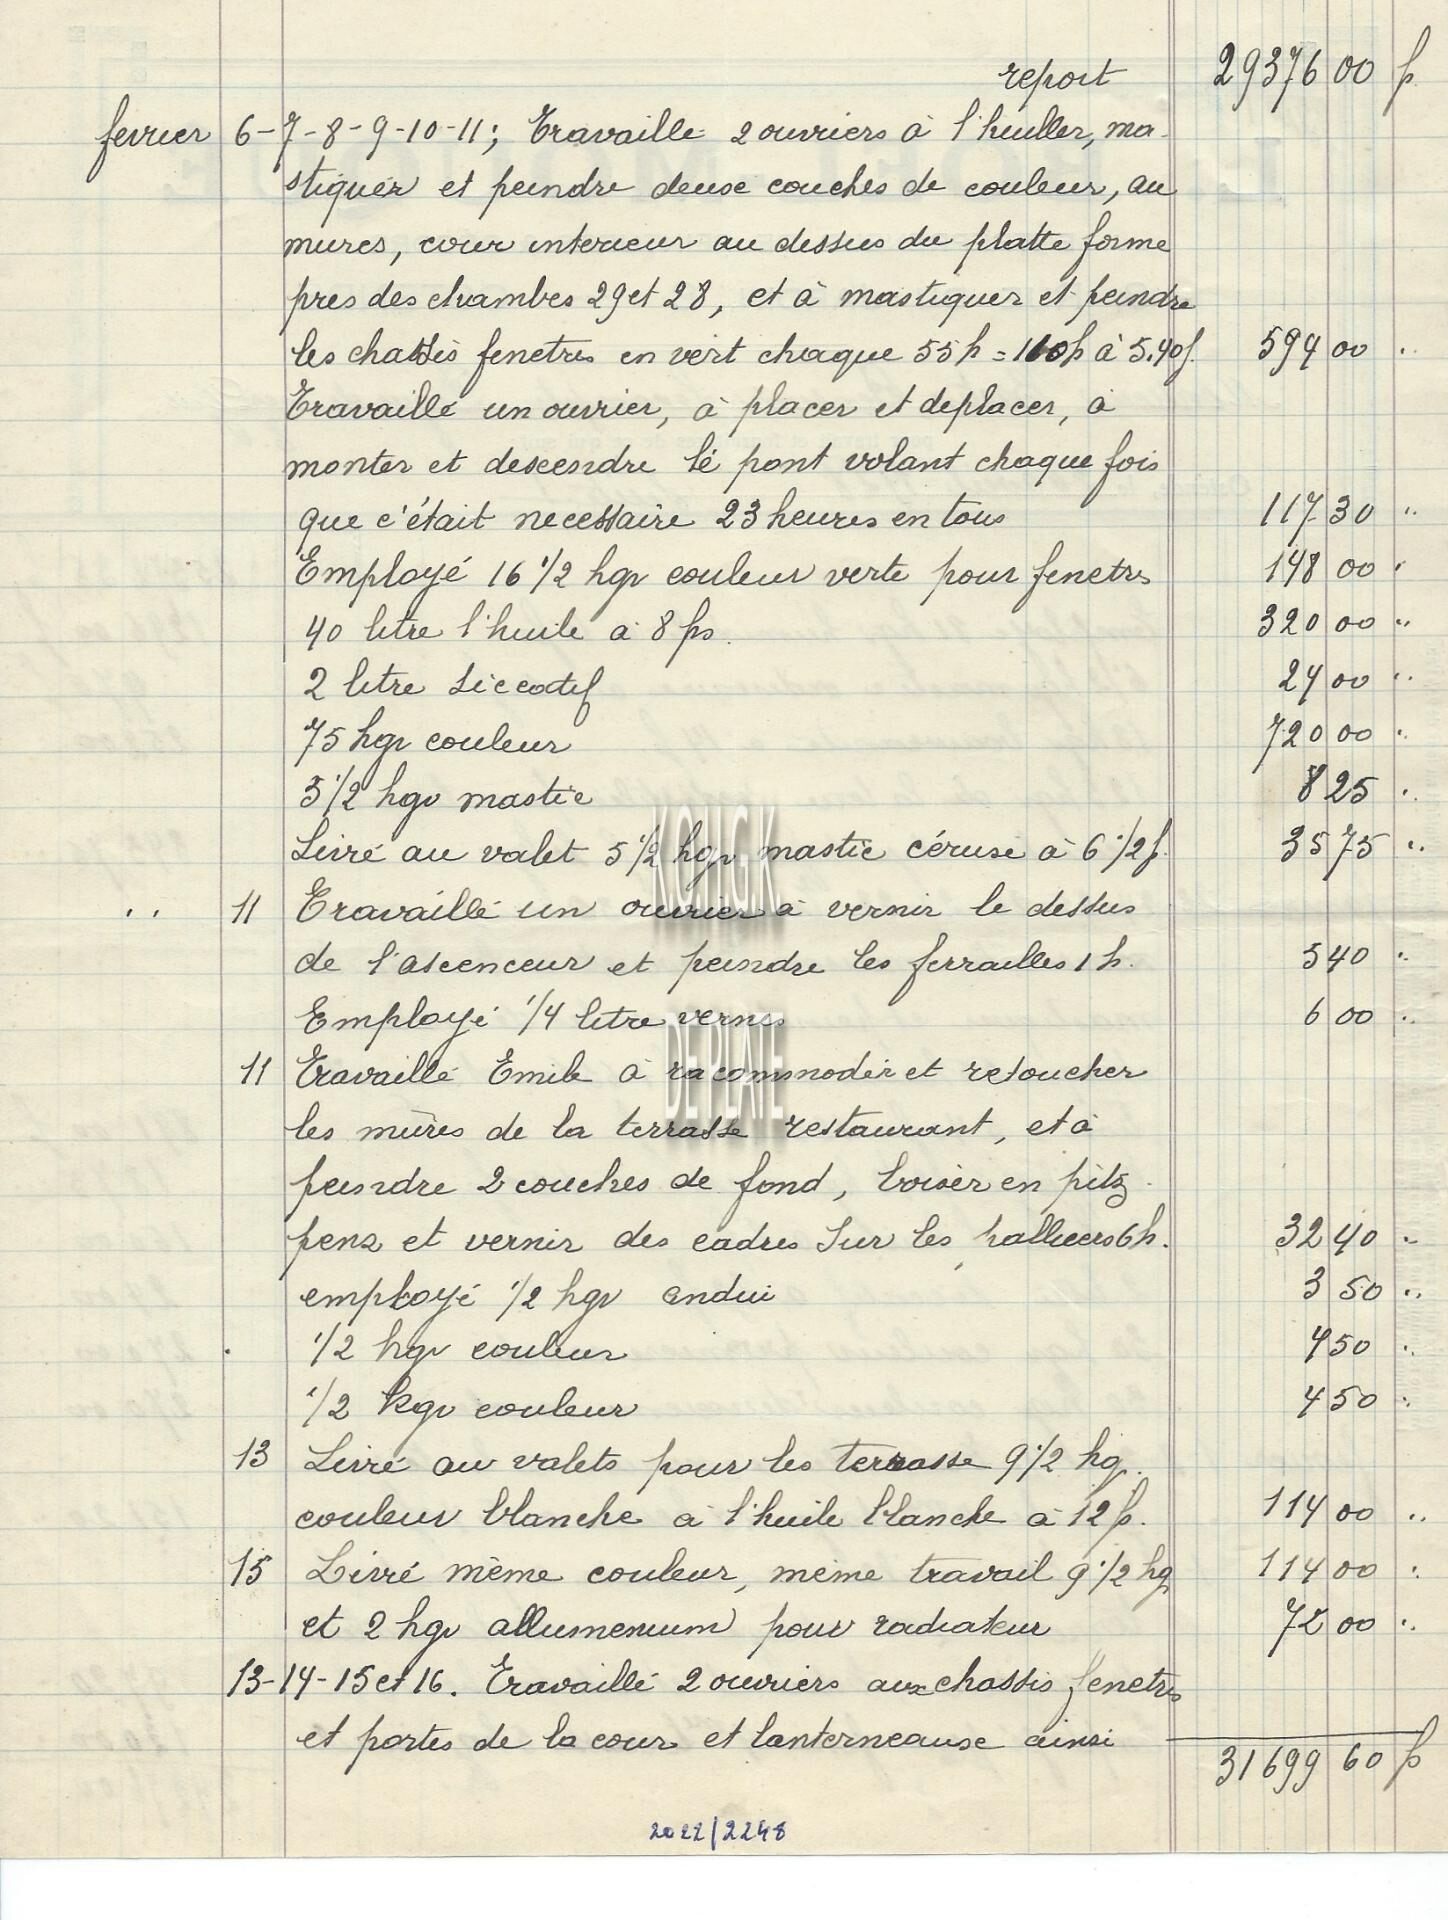 report 29376 00 f
fevrier 6-7-8-9-10-11; Travaille 2 ouvriers à l'huiller, ma-
stiquer et peindre deuse couches de couleur, au
mures, cour interieur au dessus du platte forme
pres des chambres 29 et 28, et à mastiquer et peindre
les chassis fenetres en vert chaque 55 h = 110 h à 5.40 f. 594 00 "
Travaille un ouvrier, à placer et deplacer, à
monter et descendre le pont volant chaque fois
que c'était necessaire 23 heures en tous 117 30 "
Employé 16 1/2 kgr couleur verte pour fenetres 148 00 "
40 litre l'huile à 8 frs. 320 00 "
2 litre siccatif 24 00 "
75 kgr couleur 720 00 "
5 1/2 kgr mastic 8 25 "
Livré au valet 5 1/2 kgr mastic céruse à 6 1/2 f. 35 75 "
" 11 Travaillé un ouvrier à vernir le dessus
de l'ascenceur et peindre les ferrailles 1 h. 5 40 "
Employé 1/4 litre vernis 6 00 "
11 Travaillé Emile à racommoder et retoucher
les mûres de la terrasse restaurant, et à
peindre 2 couches de fond, boiser en pitz-
penz et vernir des cadres sur les halliers 6 h. 32 40 "
employé 1/2 kgr endui 3 50 "
1/2 kgr couleur 4 50 "
1/2 kgr couleur 4 50 "
13 Livré au valets pour les terrasse 9 1/2 kg.
couleur blanche à l'huile blanche à 12 f. 114 00 "
15 Livré même couleur, même travail 9 1/2 kg 114 00 "
et 2 kgr allumenium pour radiateur 72 00 "
13-14-15 et 16. Travaillé 2 ouvriers aux chassis fenetres
et portes de la cour et lanterneause ainsi
31699 60 f
2022/2248
KCHGK
DE PLATE